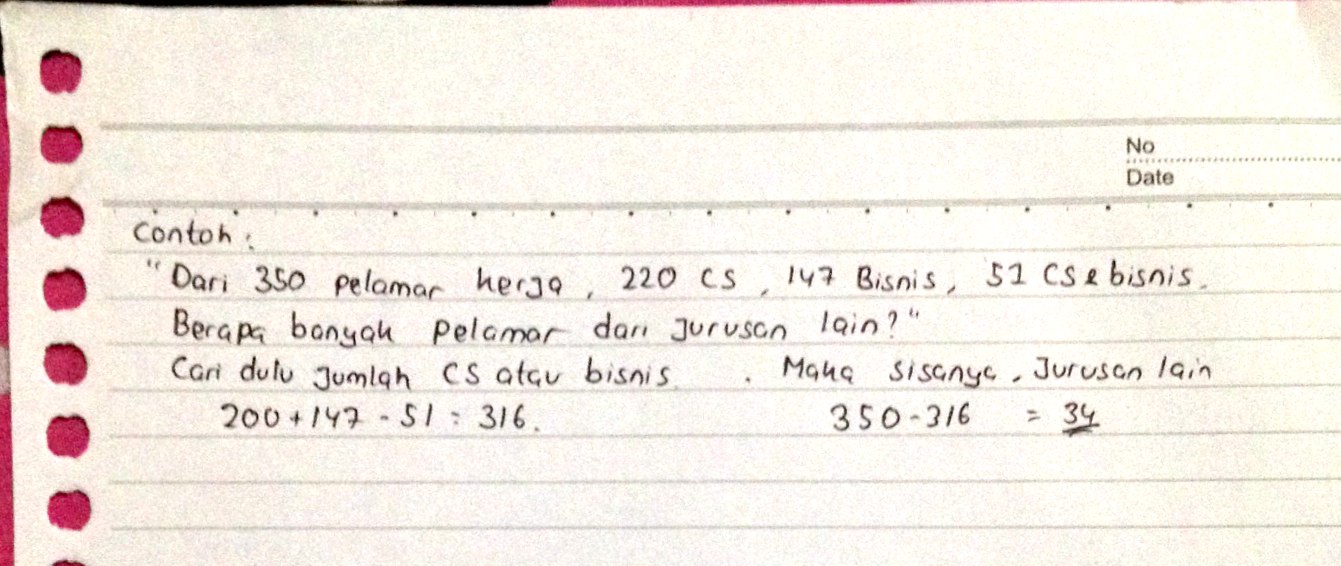 No
Date
Contoh :
"Dari 350 pelamar kerja, 220 CS, 147 Bisnis, 51 CS & bisnis.
Berapa banyak pelamar dari jurusan lain?"
Cari dulu jumlah CS atau bisnis. Maka sisanya, Jurusan lain
200 + 147 - 51 = 316. 350 - 316 = 34